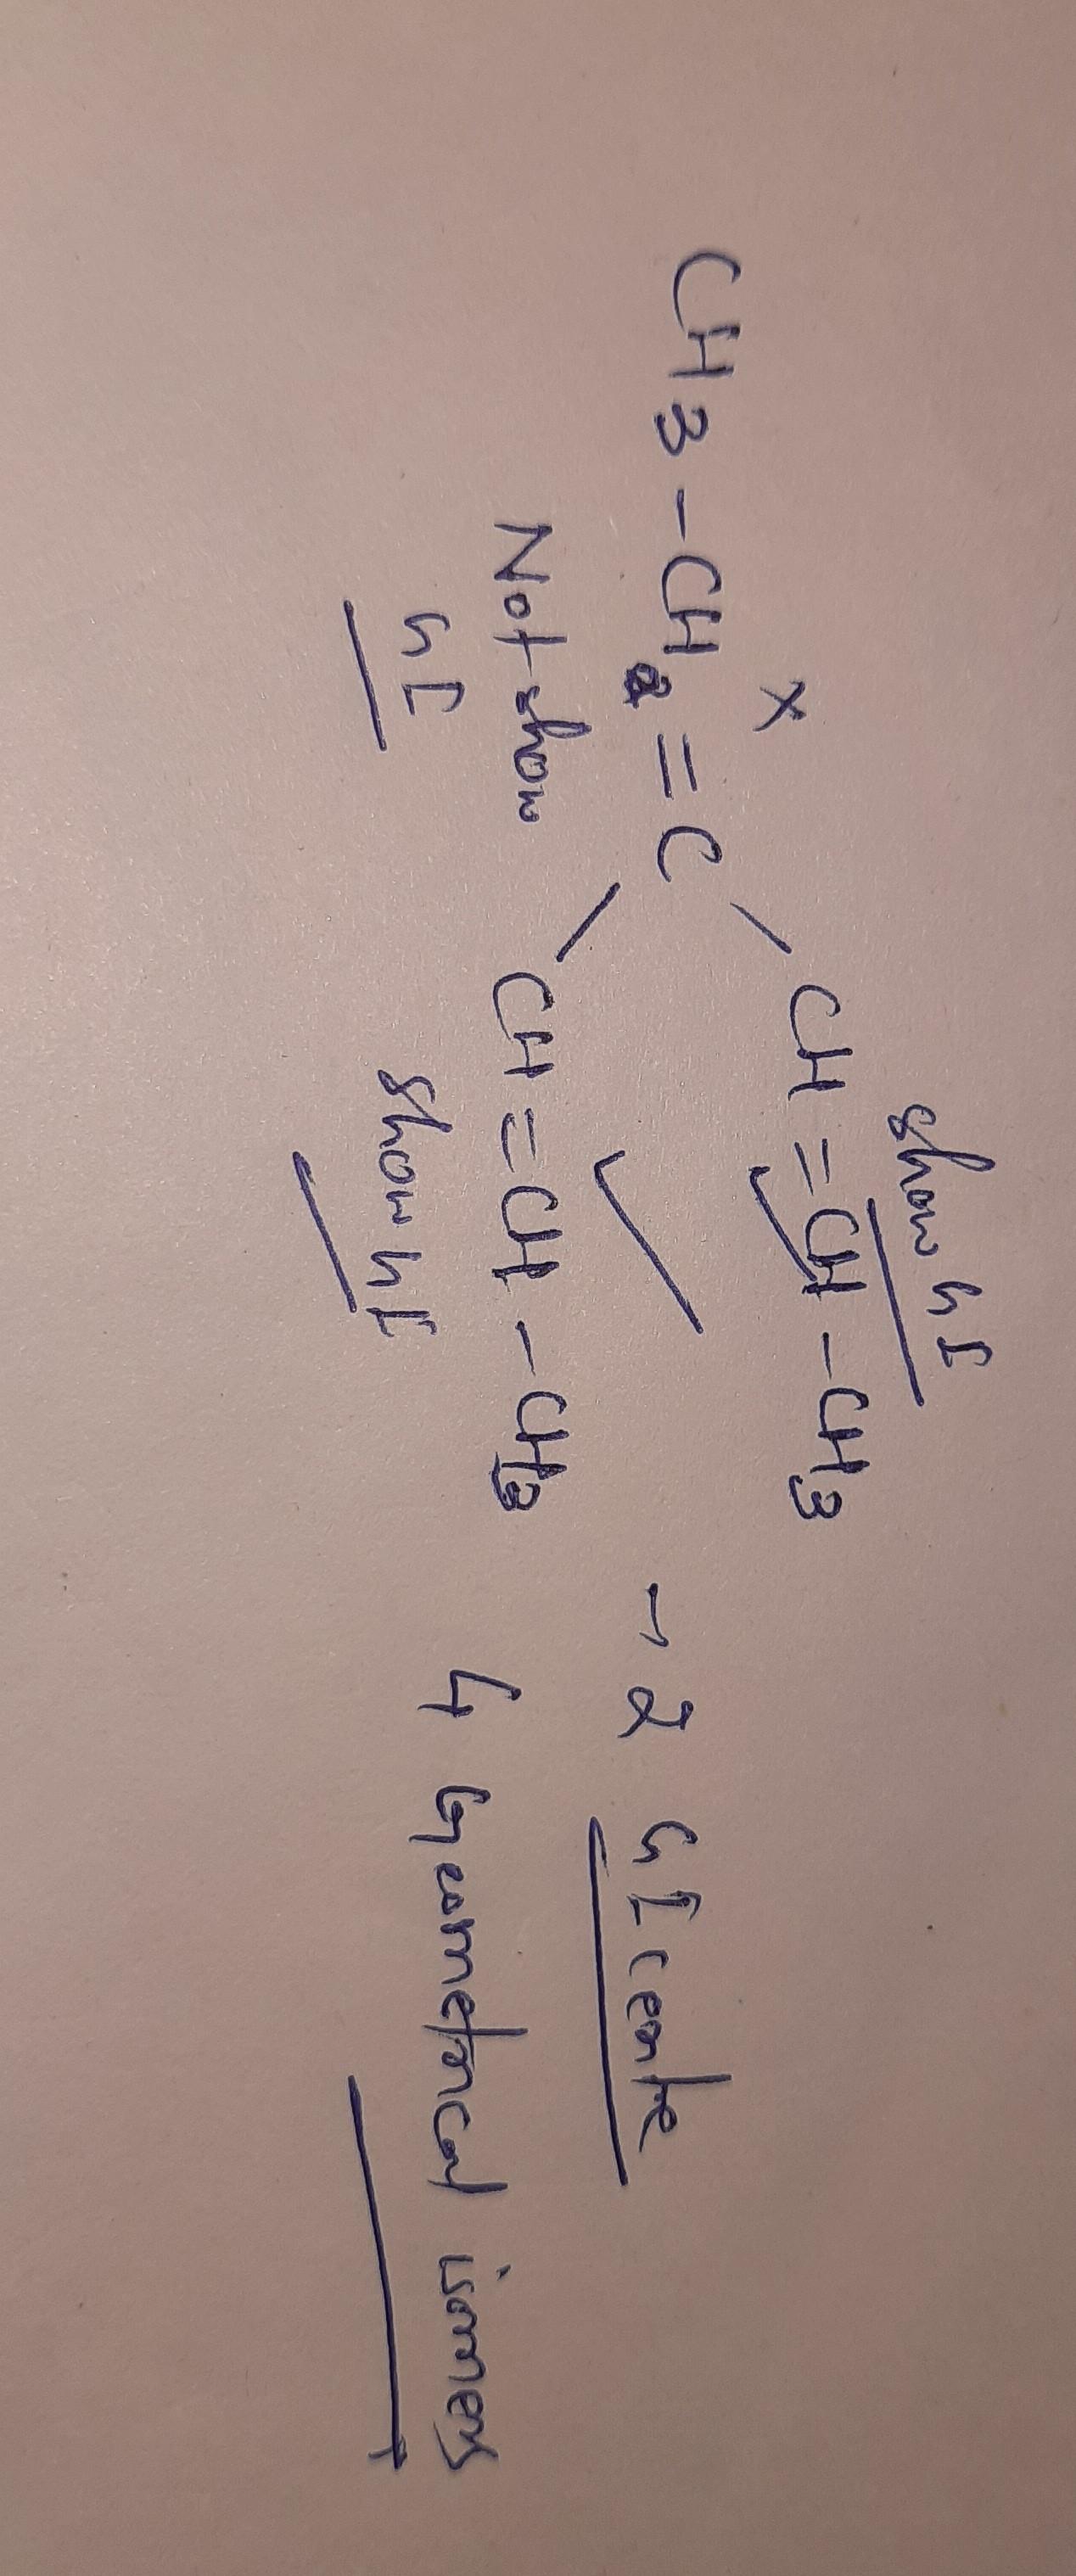 show GI
x CH = CH - CH3
CH3 - CH = C → 2 GI centre
Not show CH = CH - CH3 4 Geometrical isomers
GI show GI